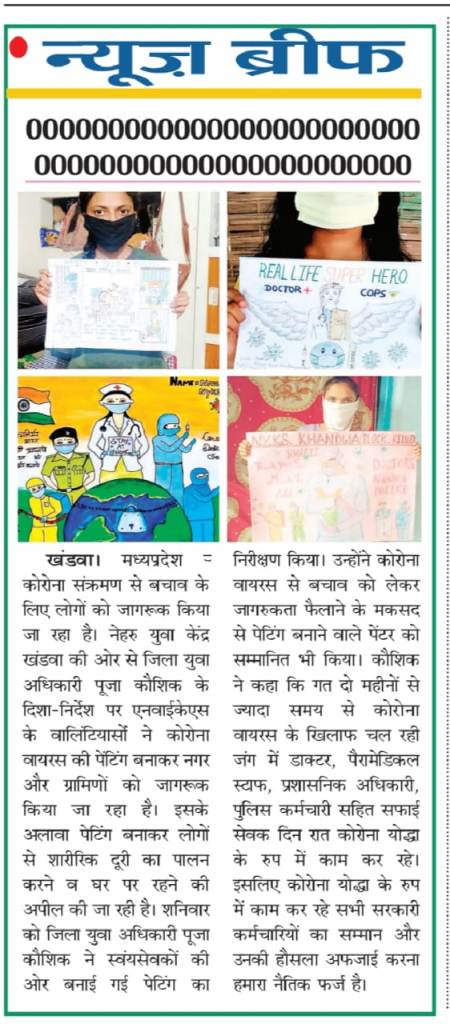 न्यूज़ ब्रीफ
000000000000000000000000
00000000000000000000000
REAL LIFE SUPER HERO
DOCTOR + COPS
NAME:
STAY
NYKS KHANDWA BLOCK
DOCTORS
खंडवा। मध्यप्रदेश
कोरोना संक्रमण से बचाव के
लिए लोगों को जागरूक किया
जा रहा है। नेहरु युवा केंद्र
खंडवा की ओर से जिला युवा
अधिकारी पूजा कौशिक के
दिशा-निर्देश पर एनवाईकेएस
के वालिंटियासों ने कोरोना
वायरस की पेंटिंग बनाकर नगर
और ग्रामिणों को जागरूक
किया जा रहा है। इसके
अलावा पेटिंग बनाकर लोगों
से शारीरिक दूरी का पालन
करने व घर पर रहने की
अपील की जा रही है। शनिवार
को जिला युवा अधिकारी पूजा
कौशिक ने स्वंयसेवकों की
ओर बनाई गई पेटिंग का
निरीक्षण किया। उन्होंने कोरोना
वायरस से बचाव को लेकर
जागरुकता फैलाने के मकसद
से पेटिंग बनाने वाले पेंटर को
सम्मानित भी किया। कौशिक
ने कहा कि गत दो महीनों से
ज्यादा समय से कोरोना
वायरस के खिलाफ चल रही
जंग में डाक्टर, पैरामेडिकल
स्टाफ, प्रशासनिक अधिकारी,
पुलिस कर्मचारी सहित सफाई
सेवक दिन रात कोरोना योद्धा
के रुप में काम कर रहे।
इसलिए कोरोना योद्धा के रुप
में काम कर रहे सभी सरकारी
कर्मचारियों का सम्मान और
उनकी हौसला अफजाई करना
हमारा नैतिक फर्ज है।